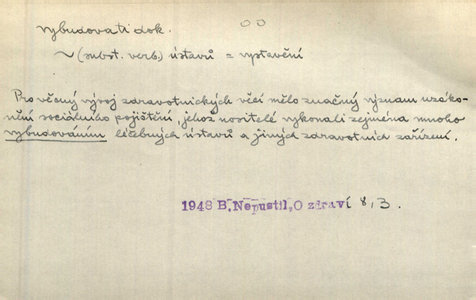 vybudovati dok.
~ (subst. verb.) ústavů = vystavění
Pro věcný vývoj zdravotnických věcí mělo značný význam uzáko-
nění sociálního pojištění, jehož nositelé vykonali zejména mnoho
vybudováním léčebných ústavů a jiných zdravotních zařízení.
1948 B. Nepustil, O zdraví 8, 3.